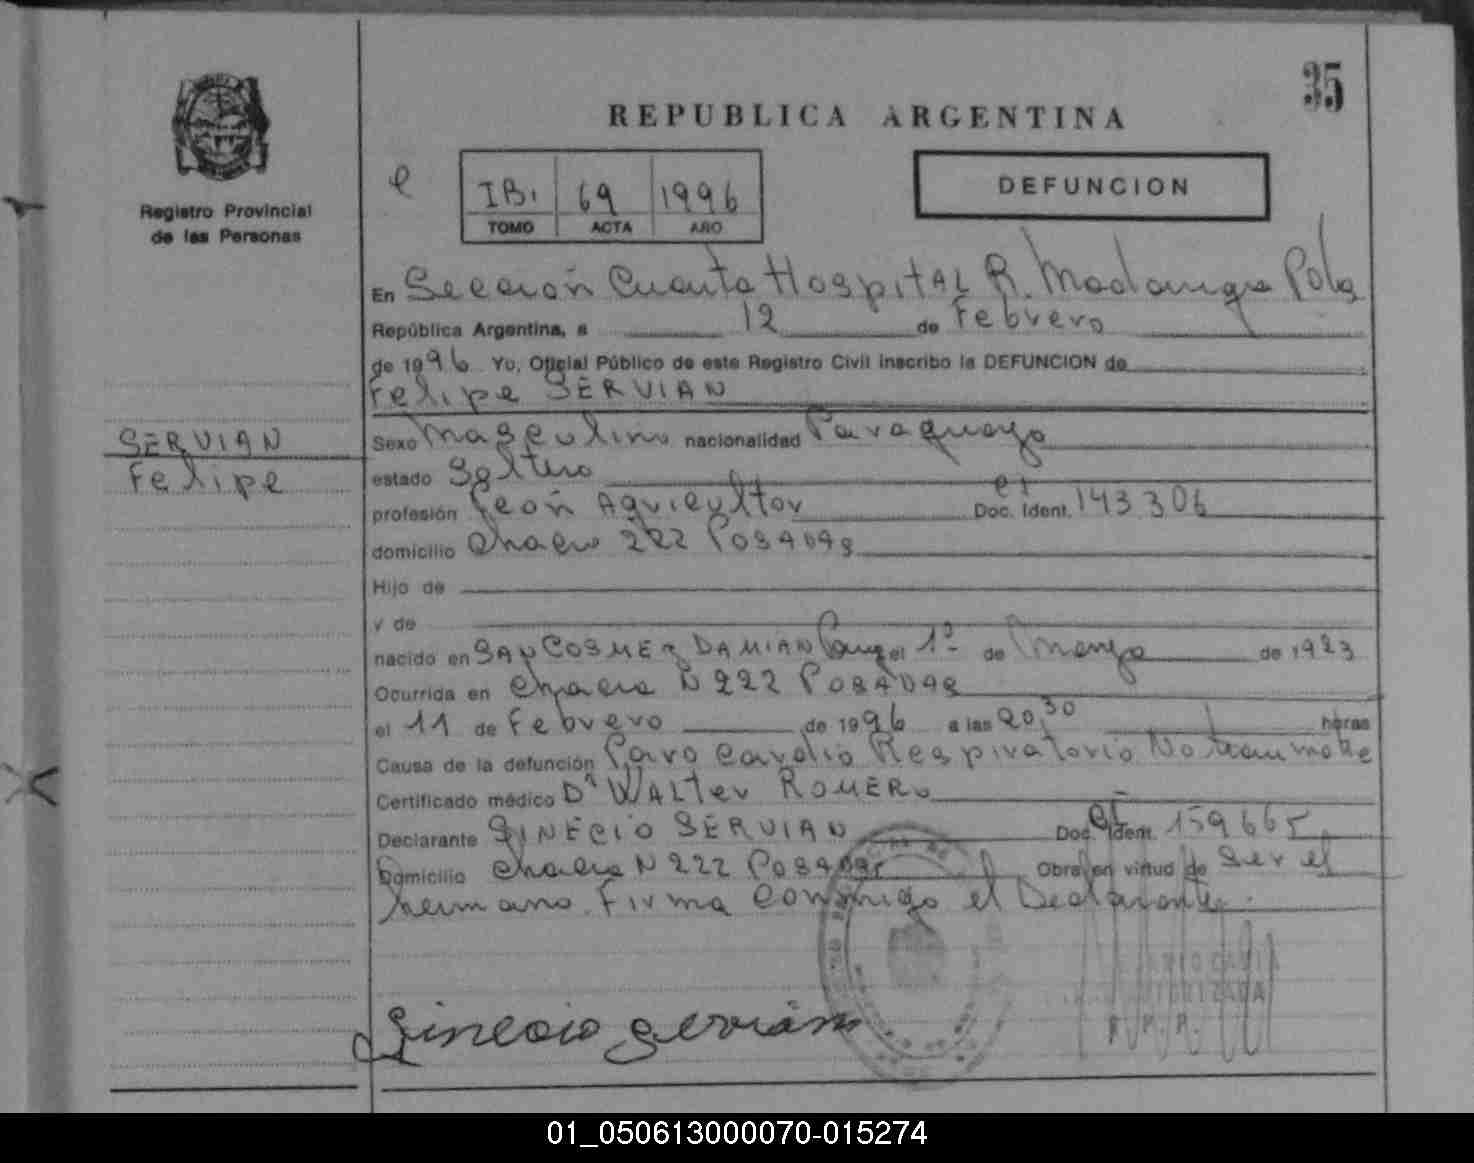 35
REPUBLICA ARGENTINA
Registro Provincial
de las Personas
e
IB1 69 1996
TOMO ACTA AÑO
DEFUNCION
En Sección Cuarta Hospital R. Madariaga Pdas
República Argentina, a 12 de Febrero
de 1996 Yo, Oficial Público de este Registro Civil inscribo la DEFUNCION de
Felipe SERVIAN
SERVIAN
Felipe
Sexo Masculino nacionalidad Paraguayo
estado Soltero
profesión Peón Agricultor Doc. Ident. CI 143.306
domicilio Chacra 222 Posadas
Hijo de
y de
nacido en SAN COSME y DAMIAN Parag el 1º de Mayo de 1923
Ocurrida en Chacra N 222 Posadas
el 11 de Febrero de 1996 a las 20,30 horas
Causa de la defunción Paro Cardio Respiratorio No traumatic
Certificado médico Dr WALTER ROMERO
Declarante SINECIO SERVIAN Doc. Ident. CI 159665
Domicilio Chacra N 222 Posadas Obra en virtud de ser el
hermano. Firma conmigo el Declarante.
Sinecio Servian
AUTORIZADA
R. P. P.
01_050613000070-015274